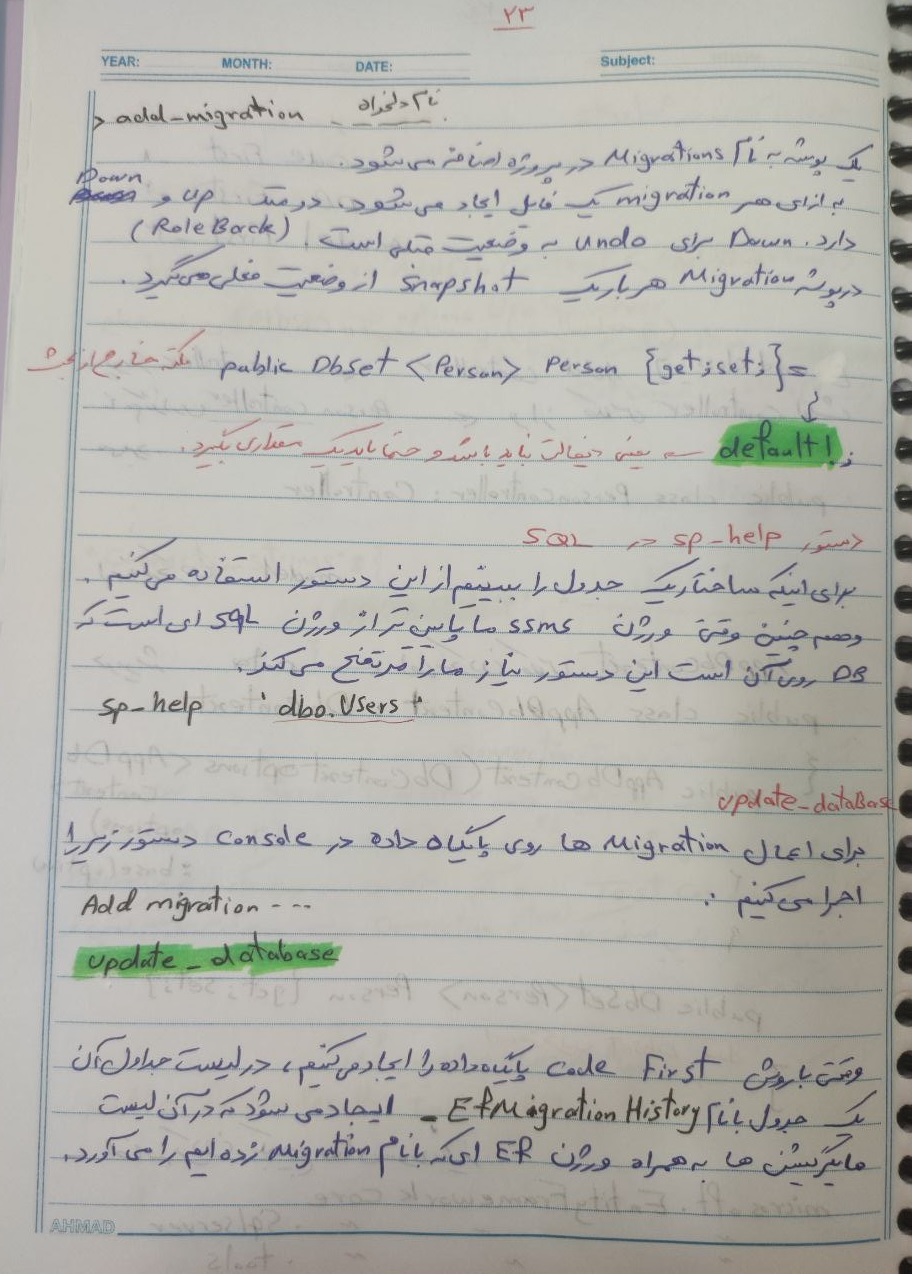 ۲۳
YEAR: MONTH: DATE: Subject:
> add-migration نام دلخواه
یک پوشه به نام Migrations در پروژه اضافه می‌شود.
به ازای هر migration یک فایل ایجاد می‌شود، دو متد up و Down
دارد. Down برای undo به وضعیت قبلی است. (Role Back)
در پوشه Migration هر بار یک snapshot از وضعیت فعلی می‌گیرد.
public DbSet <Person> Person {get; set;} = نکته خارج از بحث
default!; یعنی دیفالت نباید باشد و حتما باید یک مقداری بگیرد.
دستور sp-help در SQL
برای اینکه ساختار یک جدول را ببینیم از این دستور استفاده می‌کنیم.
و همچنین وقتی ورژن ssms ما پایین تر از ورژن SQL ای است که
DB روی آن است این دستور نیاز ما را مرتفع می‌کند.
sp-help 'dbo.Users'
update_dataBase
برای اعمال Migration ها روی پایگاه داده در console دستور زیر را
اجرا می‌کنیم:
Add migration ---
update_database
وقتی با روش Code First پایگاه داده را ایجاد می‌کنیم، در لیست جداول آن
یک جدول با نام EFMigration History_ ایجاد می شود که در آن لیست
مایگریشن ها به همراه ورژن EF ای که با نام Migration زده ایم را می آورد.
AHMAD